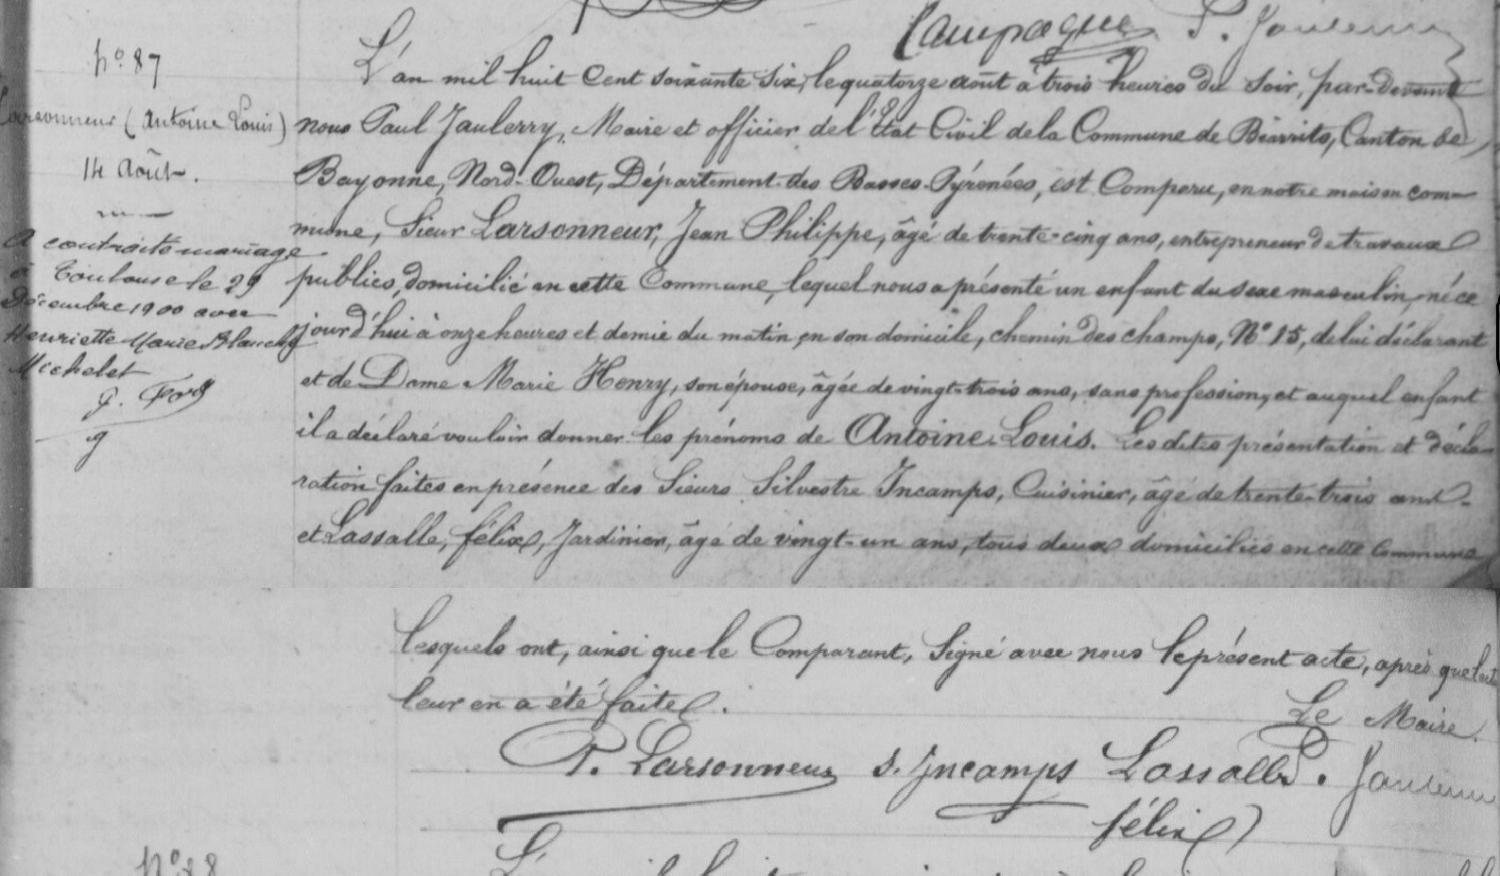 Campagne P. Jaulerry
N° 87
Larsonneur (Antoine Louis)
14 Août.
A contracté mariage
à Toulouse le 29
Décembre 1900 avec
Henriette Marie Blanche
Michelet
L'an mil huit Cent soixante six, le quatorze août à trois heures du soir, par-devant
nous Paul Jaulerry, Maire et officier de l'Etat Civil de la Commune de Biarrits, Canton de
Bayonne, Nord-Ouest, Département des Basses-Pyrénées, est Comparu, en notre maison com-
mune, Sieur Larsonneur, Jean Philippe, âgé de trente-cinq ans, entrepreneur de travaux
publics, domicilié en cette Commune, lequel nous a présenté un enfant du sexe masculin, né ce
jourd'hui à onze heures et demie du matin, en son domicile, chemin des champs, N° 15, de lui déclarant
et de Dame Marie Henry, son épouse, âgée de vingt-trois ans, sans profession, et auquel enfant
il a déclaré vouloir donner les prénoms de Antoine Louis. Les dites présentation et décla-
ration faites en présence des Sieurs Silvestre Incamps, Cuisinier, âgé de trente-trois ans
et Lassalle, félix, Jardinier, âgé de vingt-un ans, tous deux domiciliés en cette Commune
lesquels ont, ainsi que le Comparant, Signé avec nous le présent acte, après que lect
leur en a été faite.
Le Maire.
P. Larsonneur S. Incamps Lassalle P. Jaulerry
félix
N° 88